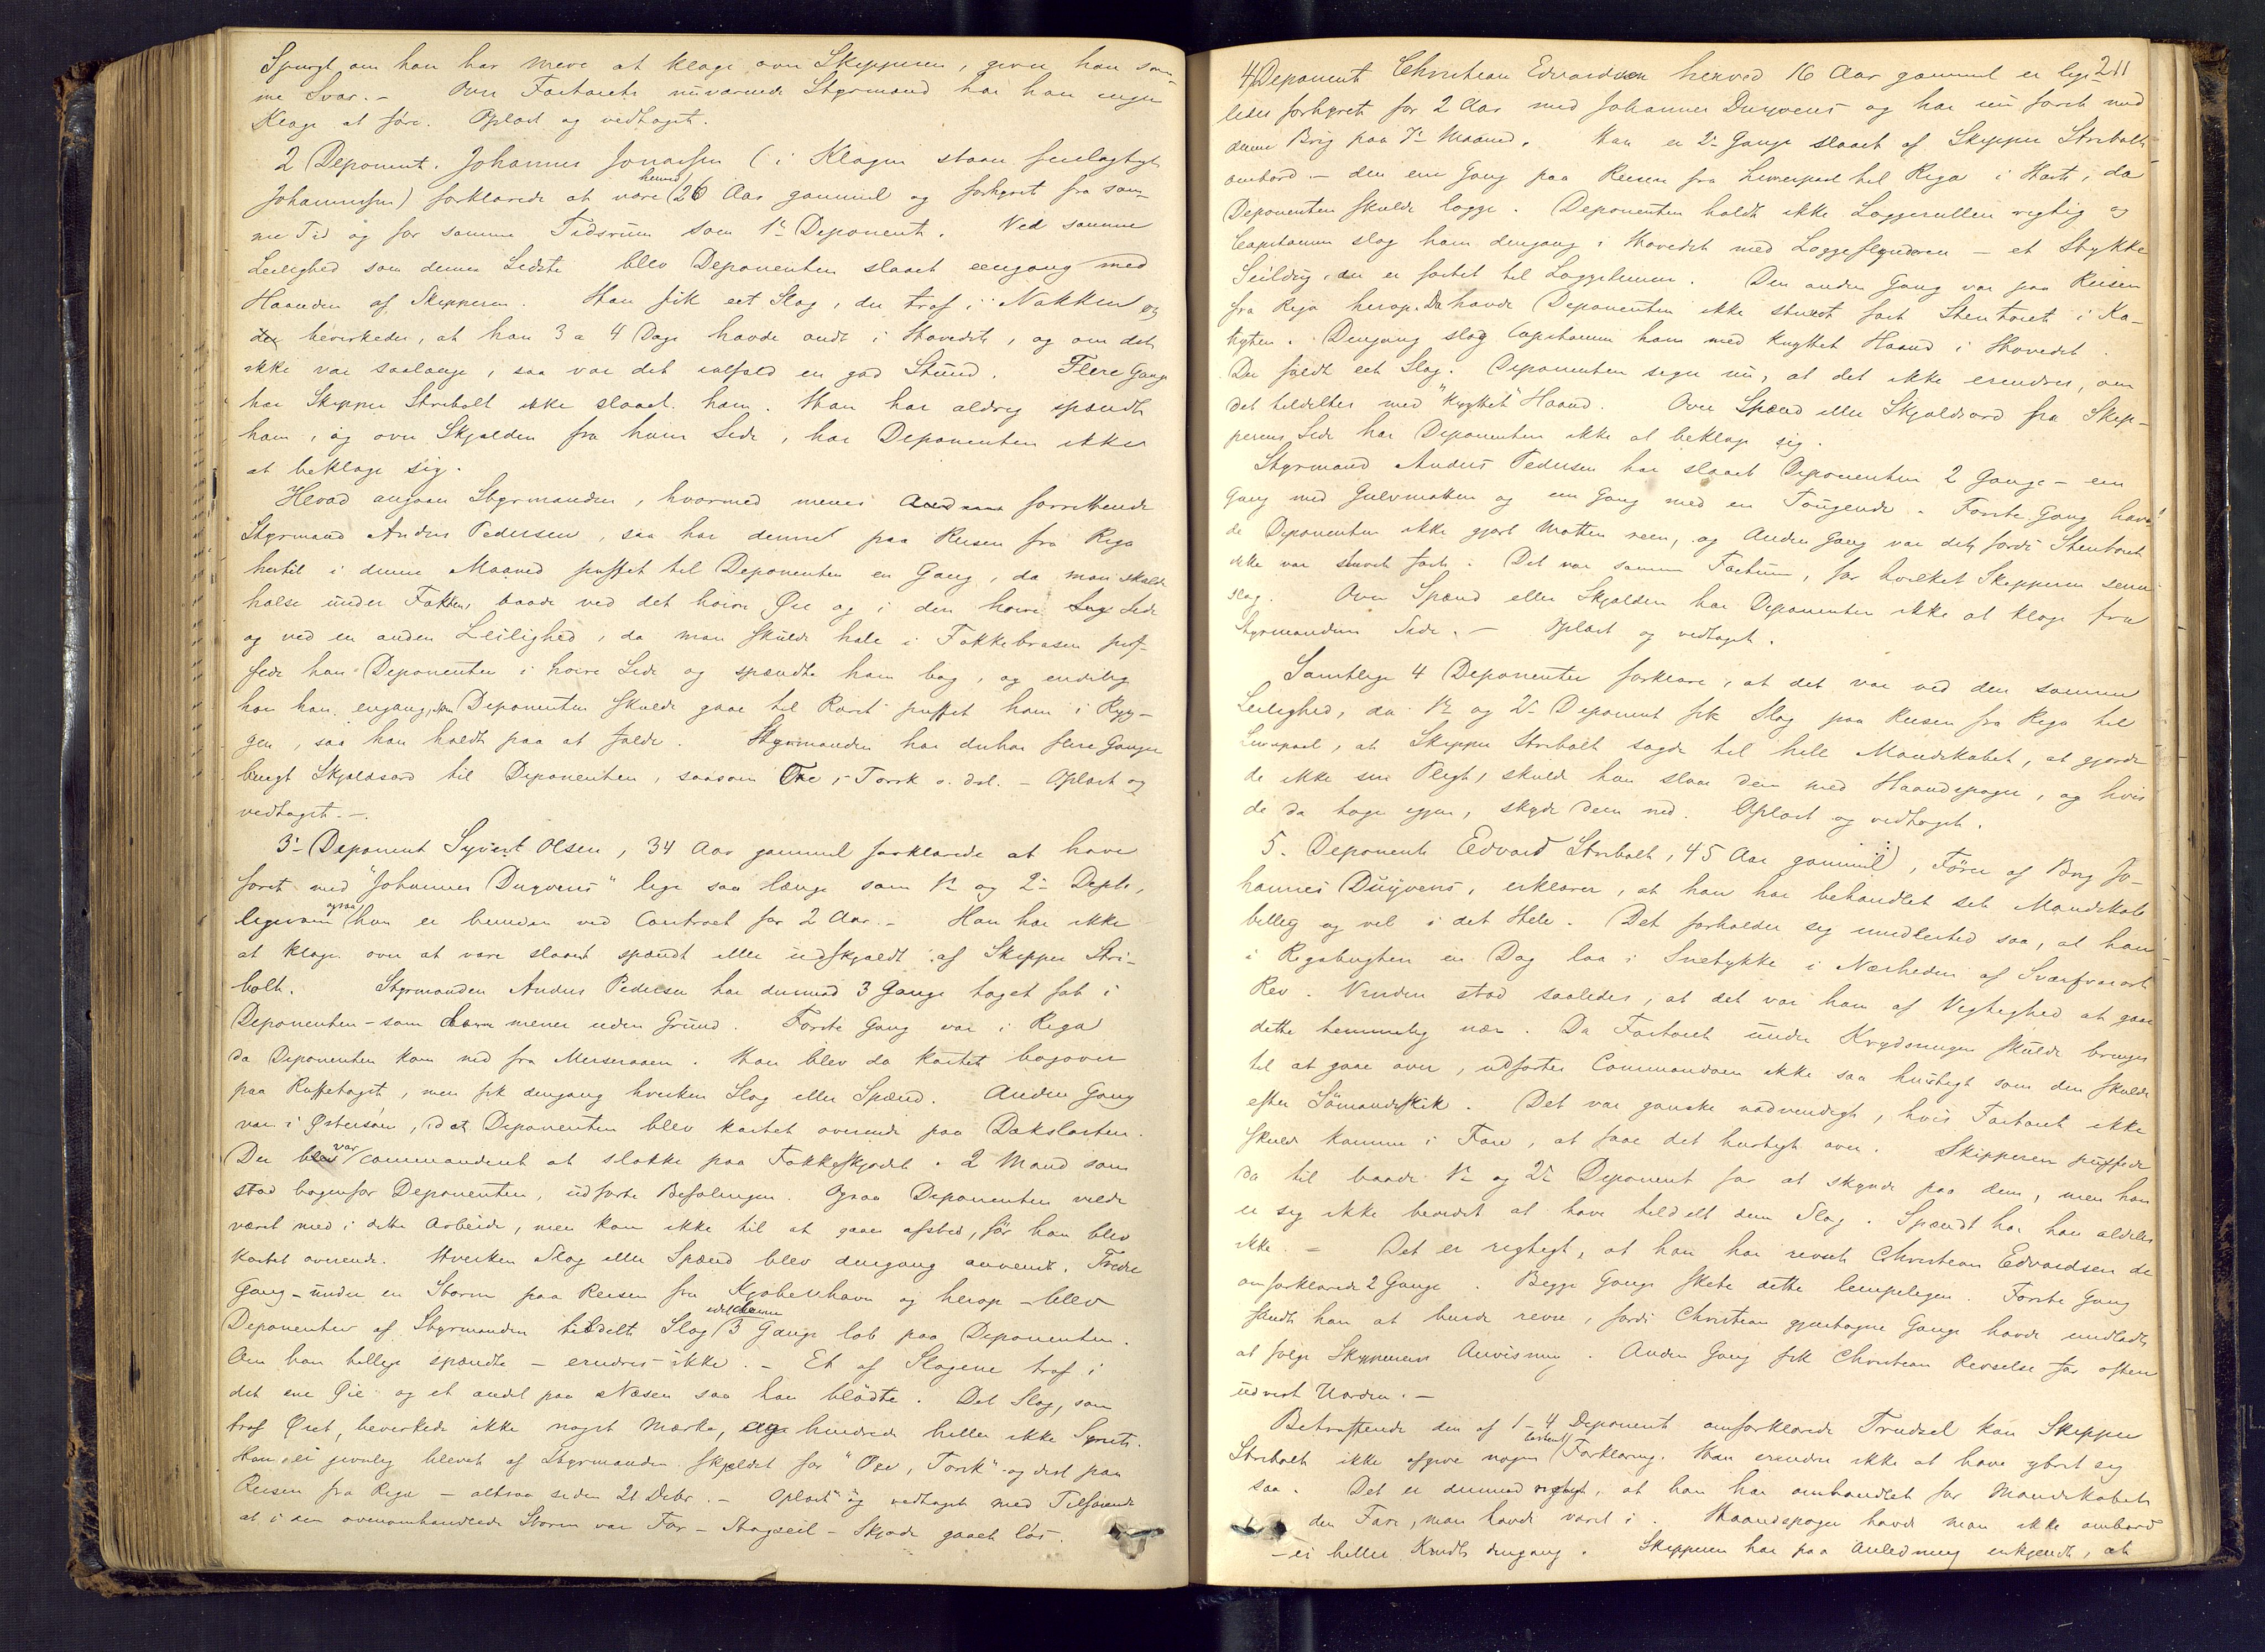 Spurgt om han har mere at klage over Skipperen, giver han sam-
me Svar. – Over Fartøiets nuværende Styrmand har han ingen
Klage at føre. Oplæst og vedtaget.
2 Deponent. Johannes Jonassen (i Klagen staar feilagtigt
Johannessen) forklarede at være henved 26 Aar gammel og forhyret fra sam-
me Tid og for samme Tidsrum som 1ste Deponent. Ved samme
Leilighed som denne Sidste blev Deponenten slaaet eengang med
Haanden af Skipperen. Han fik eet Slag, der traf i Nakken og
der bevirkede, at han 3 a 4 Dage havde ondt i Hovedet, og om det
ikke var saalænge, saa var det ialfald en god Stund. Flere Gange
har Skipper Stribolt ikke slaaet ham. Han har aldrig spændt
ham, og over Skjælden fra hans Side, har Deponenten ikke
at beklage sig.
Hvad angaar Styrmanden, hvormed menes forrettende
Styrmand Anders Pedersen, saa har denne paa Reisen fra Riga
hertil i denne Maaned puffet til Deponenten en Gang, da man skulde
halse under Fokken, baade ved det høire Øre og i den høire Side
og ved en anden Leilighed, da man skulde hale i Fokkebrasen puf-
fede han Deponenten i høire Side og spændte ham bag, og endelig
har han engang, som Deponenten skulde gaae til Roret puffet ham i Ryg-
gen, saa han holdt paa at falde. Styrmanden har derhos flere Gange
brugt Skjældsord til Deponenten, saasom Oxe, Torsk o. dsl. – Oplæst og
vedtaget. –
3die Deponent Syvert Olsen, 34 Aar gammel forklarede at have
faret med "Johannes Duyvens" lige saa længe som 1ste og 2den Dept.,
ligesom ogsaa han er bunden ved Contract for 2 Aar. – Han har ikke
at klage over at være slaaet spændt eller udskjældt af Skipper Stri-
bolt. Styrmanden Anders Pedersen har derimod 3 Gange taget fat i
Deponenten – som han mener uden Grund. Første Gang var i Riga
da Deponenten kom ned fra Merseraaen. Han blev da kastet bagover
paa Ruftetaget, men fik dengang hverken Slag eller Spænd. Anden Gang
var i Østersøen, idet Deponenten blev kastet overende paa Dækslasten.
Der var commanderet at slække paa Fokkeskjødet. 2 Mand som
stod bagenfor Deponenten, udførte Befalingen. Ogsaa Deponenten vilde
været med i dette Arbeide, men kom ikke til at gaae afsted, før han blev
kastet overende. Hverken Slag eller Spænd blev dengang anvendt. Tredie
Gang – under en Storm paa Reisen fra Kjøbenhavn og herop – blev
Deponenten af Styrmanden tildelt Slag 3 Gange løb paa Deponenten.
Om han tillige spændte – erindres ikke. – Et af Slagene traf i
det ene Øie og et andet paa Næsen saa han blødte. Det Slag, som
traf Øiet, bevirkede ikke noget Mærke, og hindrede heller ikke Synet.
Han er jevnlig blevet af Styrmanden skjældet for "Oxe, Torsk" og dsl paa
Reisen fra Riga – altsaa siden 21 Decbr. – Oplæst og vedtaget med Tilføiende
at i den ovenomhandlede Storm var For-Stagseil-Skjøde gaaet løs.
211
4de Deponent Christian Edvardsen henved 16 Aar gammel er lige-
ledes forhyret for 2 Aar med Johannes Duyvens og har nu faret med
denne Brig paa 7de Maaned. Han er 2de Gange slaaet af Skipper Stribolt
ombord – den ene Gang paa Reisen fra Liverpool til Riga i Høst, da
Deponenten skulde logge. Deponenten holdt ikke Loggerullen rigtig og
Capitainen slog ham dengang i Hovedet med Loggeflynderen – et Stykke
Seildug, der er fæstet til Loggelinen. Den anden Gang var paa Reisen
fra Riga herop. Da havde Deponenten ikke stuet fast Stentøiet i Ka-
hytten. Dengang slog Capitainen ham med knyttet Haand i Hovedet.
Der faldt eet Slag. Deponenten siger nu, at det ikke erindres, om
det tildeltes med "knyttet" Haand. Over Spænd eller Skjældsord fra Skip-
perens Side har Deponenten ikke at beklage sig.
Styrmand Anders Pedersen har slaaet Deponenten 2 Gange – en
Gang med Gulvmatten og en Gang med en Tougende. Første Gang hav-
de Deponenten ikke gjort Matten reen, og Anden Gang var det, fordi Stentøiet
ikke var stuvet fast. Det var samme Factum, for hvilket Skipperen
slog. Over Spænd eller Skjælden har Deponenten ikke at klage fra
Styrmandens Side. – Oplæst og vedtaget.
Samtlige 4 Deponenter forklare, at det var ved den samme
Leilighed, da 1ste og 2den Deponent fik Slag paa Reisen fra Riga til
Liverpool, at Skipper Stribolt sagde til hele Mandskabet, at gjorde
de ikke sin Pligt, skulde han slaae dem med Haandspager, og hvis
de da toge igjen, skyde dem ned. Oplæst og vedtaget.
5. Deponent Edvard Stribolt, 45 Aar gammel, Fører af Brig Jo-
hannes Duyvens, erklærer, at han har behandlet sit Mandskab
billig og vel i det Hele. Det forholder sig imidlertid saa, at han
i Rigabugten en Dag laa i Snetykke i Nærheden af Svarfverort
Rev. Vinden stod saaledes, at det var ham af Vigtighed at gaae
dette temmelig nær. Da Fartøiet under Krydsningen skulde bringes
til at gaae over, udførtes Commandoen ikke saa hurtigt som den skulde
efter Sømandsskik. Det var ganske nødvendigt, hvis Fartøiet ikke
skulde komme i Fare, at faae det hurtigt over. Skipperen puffede
da til baade 1ste og 2den Deponent for at skynde paa dem, men han
er sig ikke bevidst at have tildelt dem Slag. Spændt har han aldeles
ikke. – Det er rigtigt, at han har revset Christian Edvardsen de
omforklarede 2 Gange. Begge Gange skete dette lempeligen. Første Gang
fandt han at burde revse, fordi Christian gjentagne Gange havde undladt
at følge Skipperens Anvisning. Anden Gang fik Christian Revselse for oftere
udvist Uorden. –
Betræffende den af 1–4 Deponent omforklarede Trudsel kan Skipper
Stribolt ikke afgive nogen bestemt Forklaring. Han erindrer ikke at have ytret sig
saa. Det er derimod rigtigt, at han har omhandlet for Mandskabet
den Fare, man havde været i. Haandspager havde man ikke ombord
– ei heller Krudt dengang. Skipperen har paa Anledning erkjendt, at